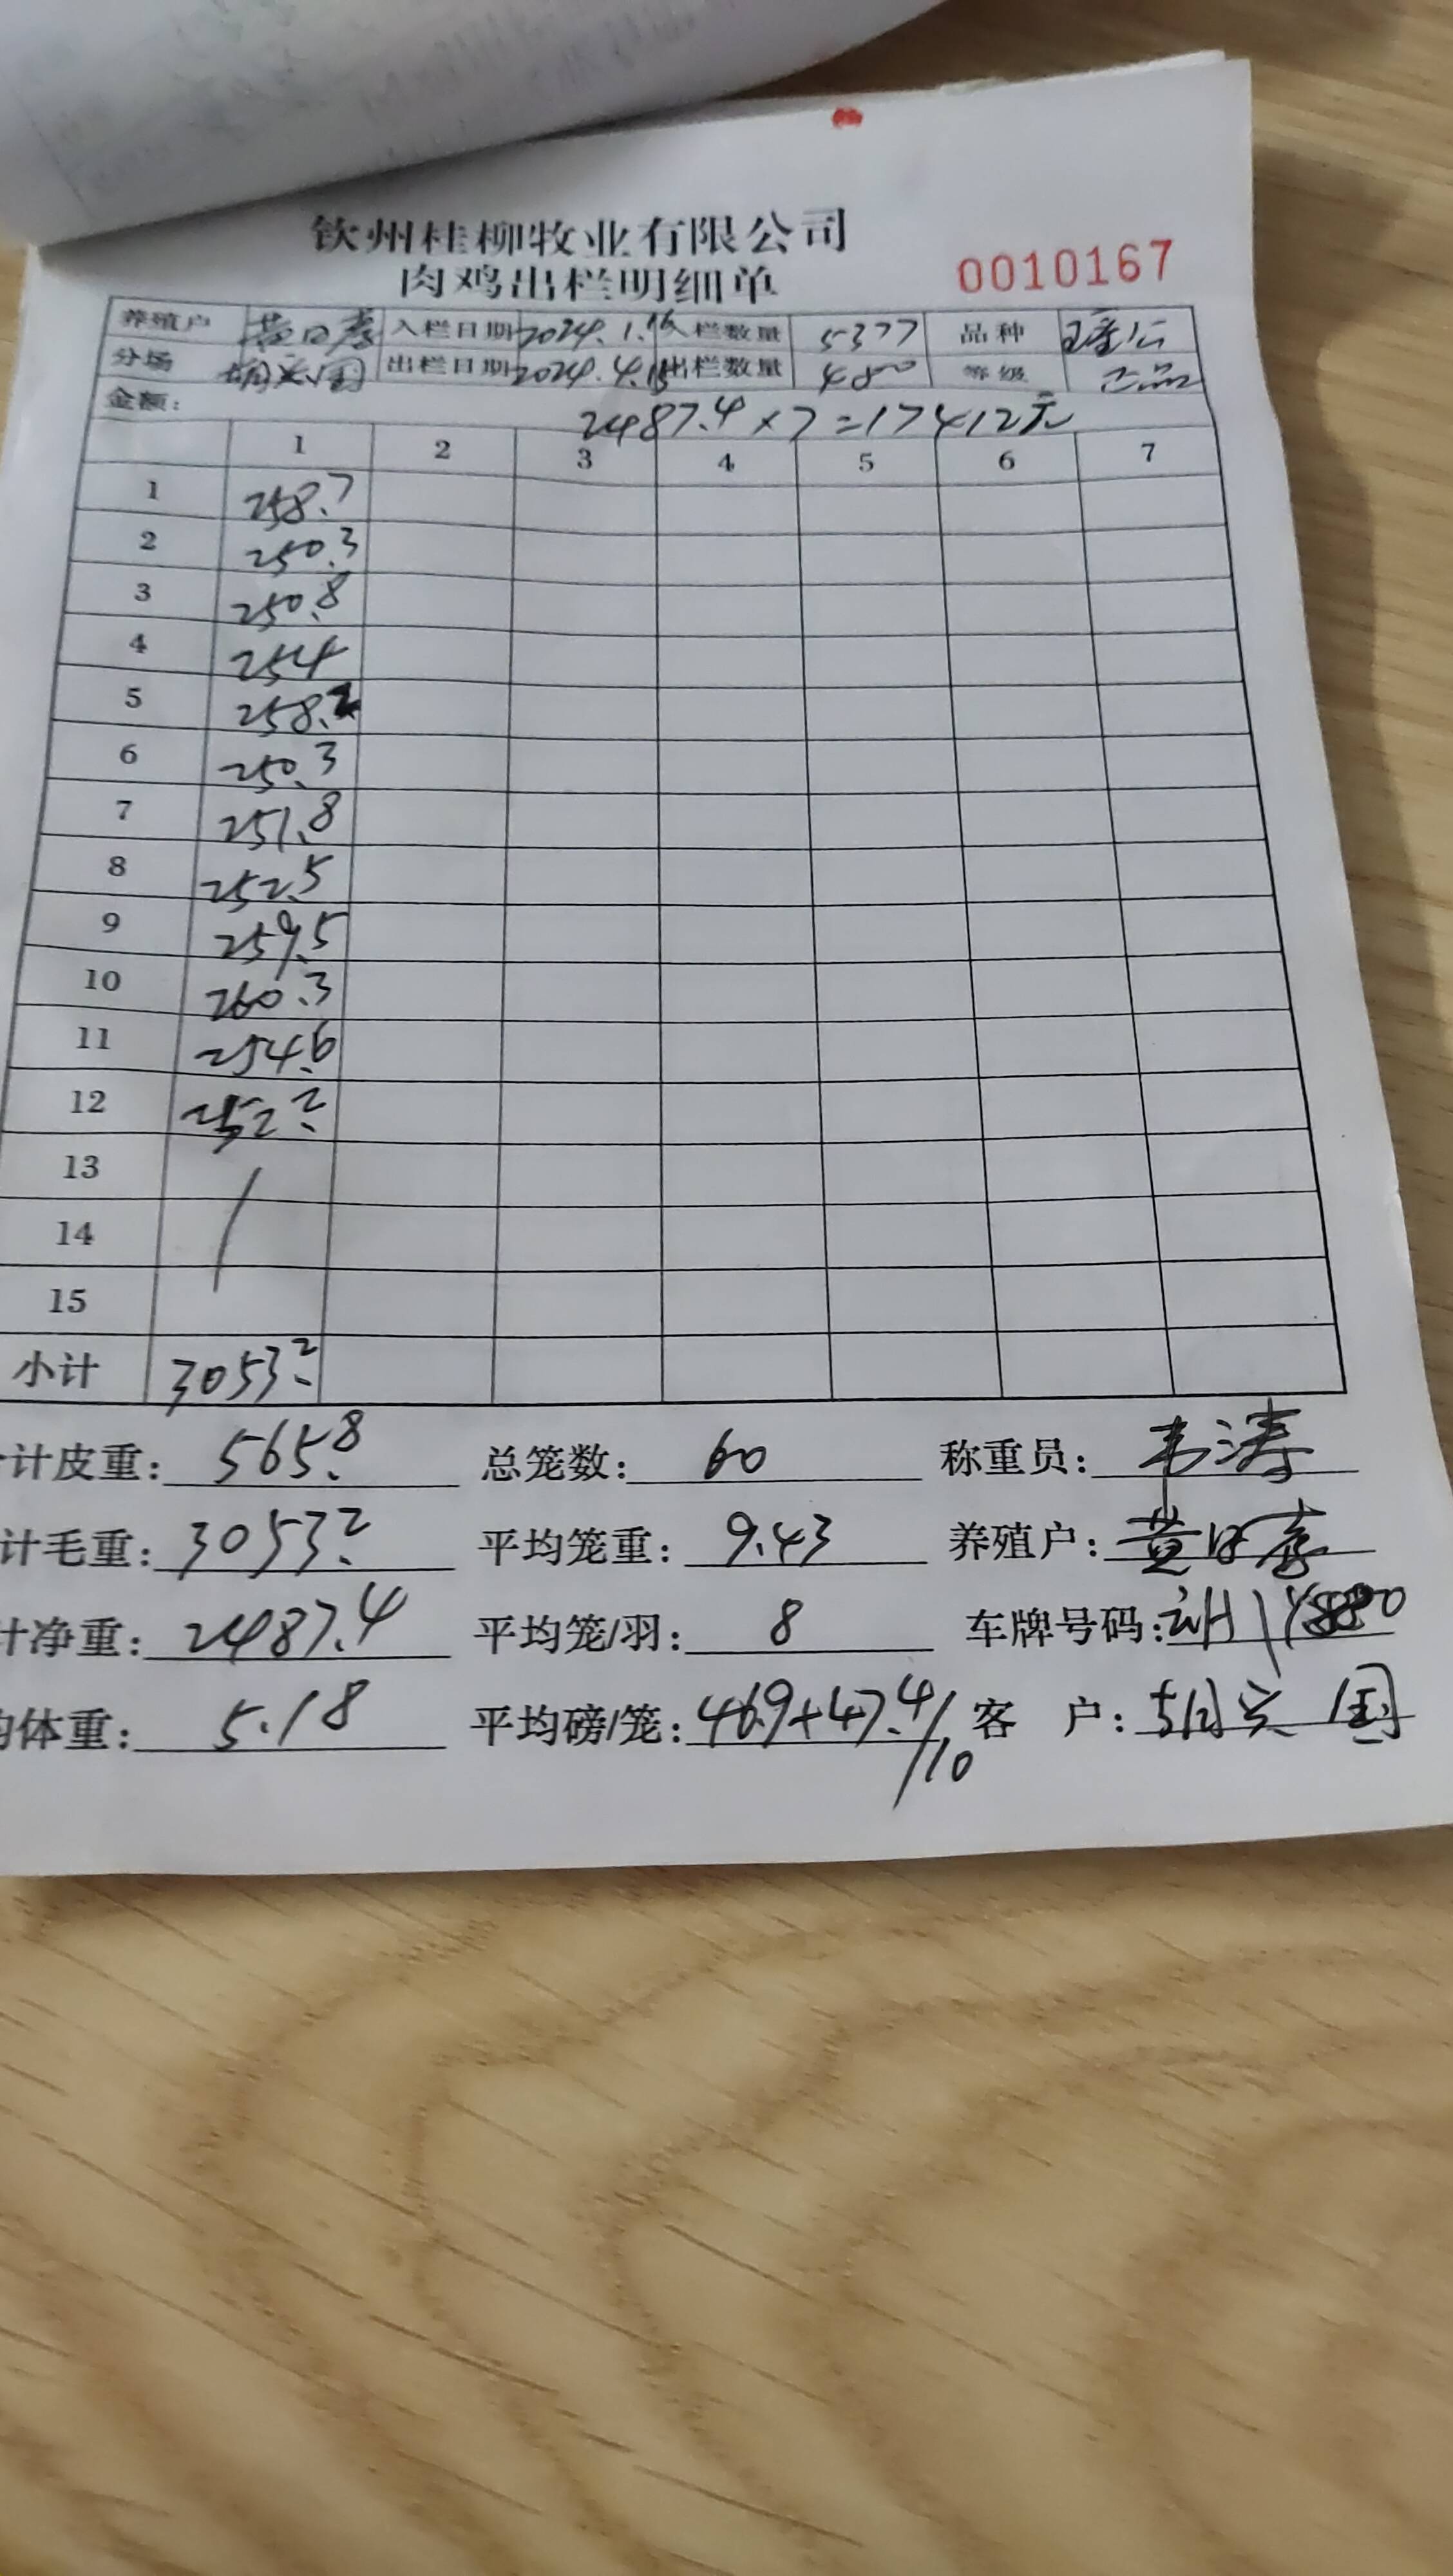 钦州桂柳牧业有限公司
肉鸡出栏明细单 0010167
养殖户 黄日 入栏日期 2024.1. 入栏数量 5377 品种
分场 胡兴国 出栏日期 2024.4. 出栏数量 480 等级 正品
金额: 2487.4×7=17412元
1 2 3 4 5 6 7
1 258.7
2 250.3
3 250.8
4 254
5 258.2
6 250.3
7 251.8
8 252.5
9 259.5
10 260.3
11 254.6
12 252.2
13
14
15
小计 3053.2
计皮重: 565.8 总笼数: 60 称重员: 韦涛
计毛重: 3053.2 平均笼重: 9.43 养殖户: 黄日
计净重: 2487.4 平均笼/羽: 8 车牌号码:
体重: 5.18 平均磅/笼: 46.9+47.4/10 客 户: 胡兴国